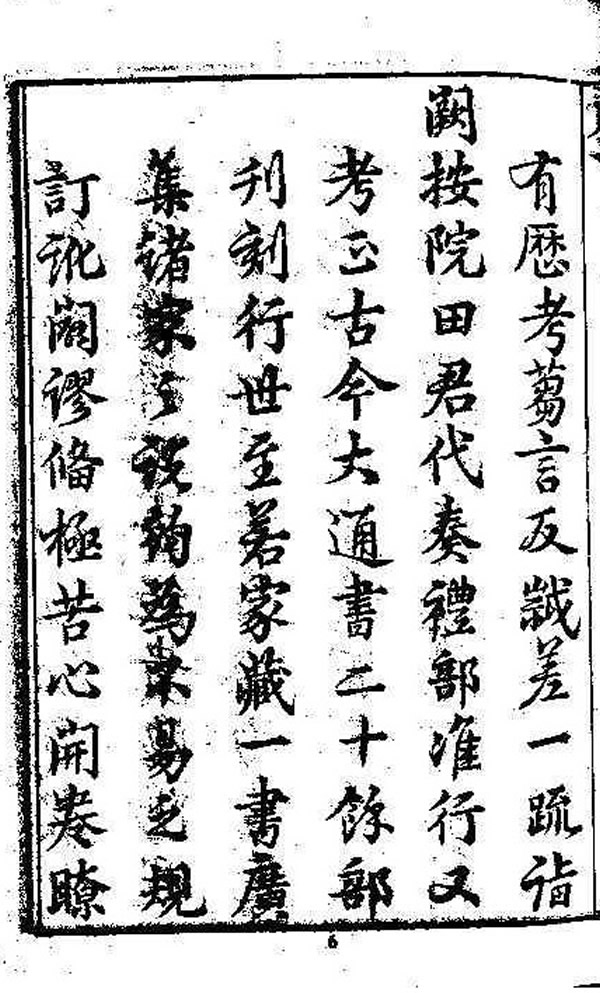 有曆考蒭言及歲差一疏詣
闕按院田君代奏禮部准行又
考正古今大通書二十餘部
刊刻行世至若家藏一書廣
集諸家之說為易之規
訂訛闢謬備極苦心開卷瞭
6